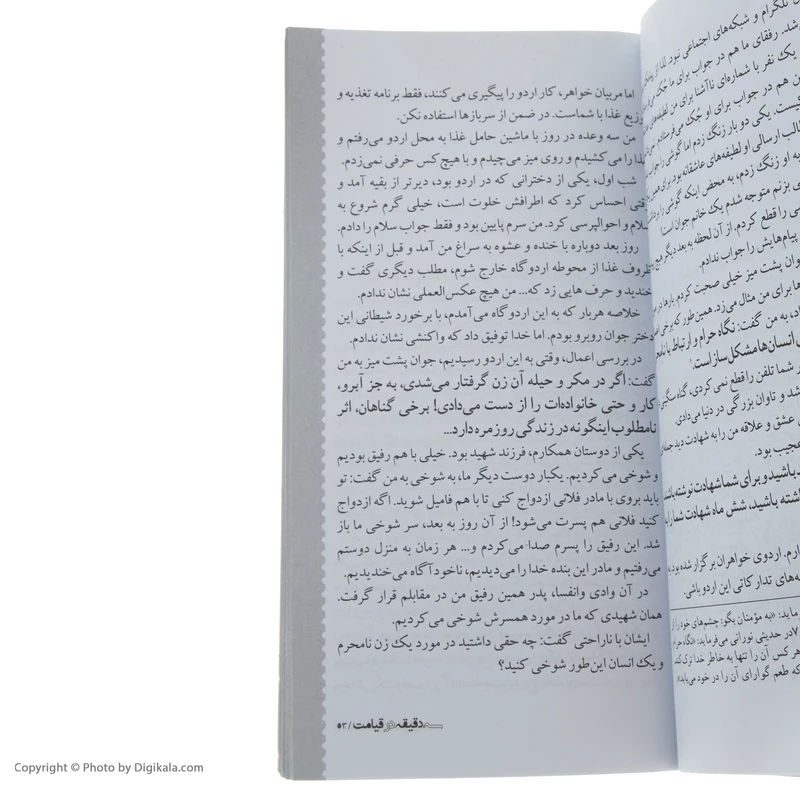 تلگرام و شبکه‌های اجتماعی نبود. لذا از پیامک
شد. رفقای ما هم در جواب برای ما جُک می‌
یک نفر با شماره‌ای ناآشنا برای من لطیفه‌
هم در جواب برای او جُک می‌فرستادم.
کیست. یکی دو بار زنگ زدم اما گوشی را جواب
الب ارسالی او لطیفه‌های عاشقانه بود. برای همین
به او زنگ زدم، به محض اینکه گوشی را برداشت
ی بزنم متوجه شدم یک خانم جوان است!
ی را قطع کردم. از آن لحظه به بعد دیگر هیچ
پیام‌هایش را جواب ندادم.
وان پشت میز خیلی صحبت کردم. بارها در
ها برای من مثال می‌زد. همین‌طور که برخی
به من گفت: نگاه حرام و ارتباط با نامحرم
انسان‌ها مشکل‌ساز است.
شما تلفن را قطع نمی‌کردی، گناه سنگینی
شد و تاوان بزرگی در دنیا می‌دادی.
عشق و علاقه من را به شهادت دید جمله‌ای
عجیب بود.
باشید و برای شما شهادت نوشته باشند
شته باشید، شش ماه شهادت شما را به
ارم. اردوی خواهران برگزار شده بود.
های تدارکاتی این اردو باشی.
ماید: «به مؤمنان بگو: چشم‌های خود را از
در حدیثی نورانی می‌فرماید: «نگاه حرام
هر کس آن را تنها به خاطر خدا ترک کند
که طعم گوارای آن را در خود می‌یابد».
اما مربیان خواهر، کار اردو را پیگیری می‌کنند، فقط برنامه تغذیه و
توزیع غذا با شماست. در ضمن از سربازها استفاده نکن.
من سه وعده در روز با ماشین حامل غذا به محل اردو می‌رفتم و
غذا را می‌کشیدم و روی میز می‌چیدم و با هیچ کس حرفی نمی‌زدم.
شب اول، یکی از دخترانی که در اردو بود، دیرتر از بقیه آمد و
وقتی احساس کرد که اطرافش خلوت است، خیلی گرم شروع به
سلام و احوالپرسی کرد. من سرم پایین بود و فقط جواب سلام را دادم.
روز بعد دوباره با خنده و عشوه به سراغ من آمد و قبل از اینکه با
ظروف غذا از محوطه اردوگاه خارج شوم، مطلب دیگری گفت و
خندید و حرف هایی زد که... من هیچ عکس‌العملی نشان ندادم.
خلاصه هربار که به این اردوگاه می‌آمدم، با برخورد شیطانی این
دختر جوان روبرو بودم. اما خدا توفیق داد که واکنشی نشان ندادم.
در بررسی اعمال، وقتی به این اردو رسیدیم، جوان پشت میز به من
گفت: اگر در مکر و حیله آن زن گرفتار می‌شدی، به جز آبرو،
کار و حتی خانواده‌ات را از دست می‌دادی! برخی گناهان، اثر
نامطلوب اینگونه در زندگی روزمره دارد...
یکی از دوستان همکارم، فرزند شهید بود. خیلی با هم رفیق بودیم
و شوخی می‌کردیم. یکبار دوست دیگر ما، به شوخی به من گفت: تو
باید بروی با مادر فلانی ازدواج کنی تا با هم فامیل شوید. اگه ازدواج
کنید فلانی هم پسرت می‌شود! از آن روز به بعد، سر شوخی ما باز
شد. این رفیق را پسرم صدا می‌کردم و... هر زمان به منزل دوستم
می‌رفتیم و مادر این بنده خدا را می‌دیدیم، ناخودآگاه می‌خندیدیم.
در آن وادی وانفسا، پدر همین رفیق من در مقابلم قرار گرفت.
همان شهیدی که ما در مورد همسرش شوخی می‌کردیم.
ایشان با ناراحتی گفت: چه حقی داشتید در مورد یک زن نامحرم
و یک انسان این‌طور شوخی کنید؟
سه دقیقه در قیامت / ۵۳
Copyright © Photo by Digikala.com